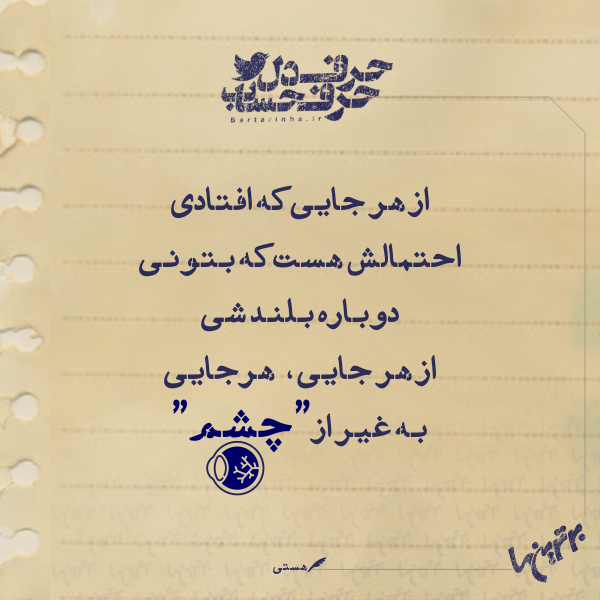 حرف دل
حرف حساب
Bartarinha.ir
از هر جایی که افتادی
احتمالش هست که بتونی
دوباره بلند شی
از هر جایی، هرجایی
به غیر از "چشم"
هستی
برترین‌ها